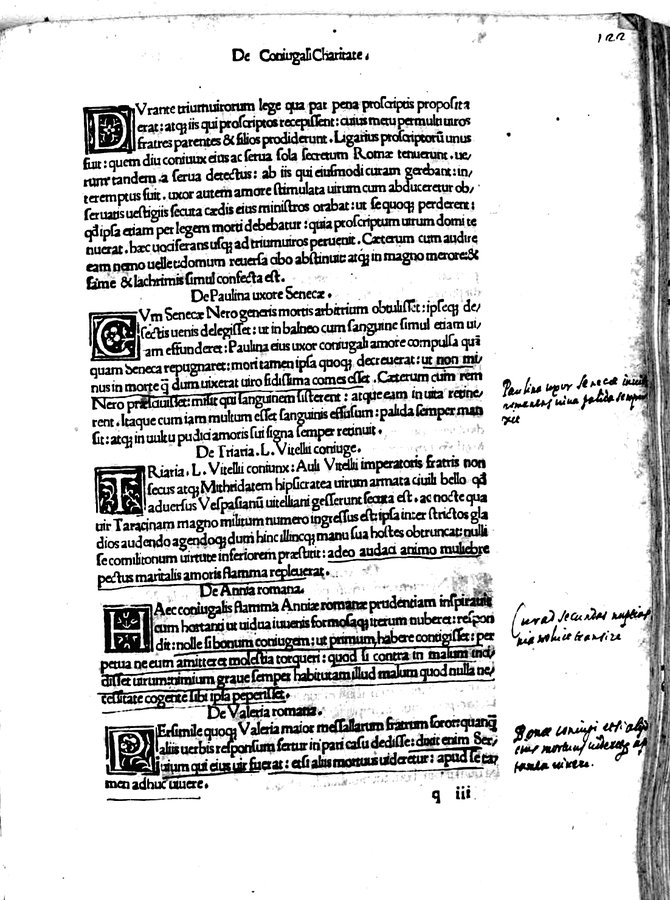 122
De Coniugali Charitate.
DVrante triumuirorum lege qua par pena proscriptis proposita
erat: atq; iis qui proscriptos recepissent: cuius metu permulti uiros
fratres parentes & filios prodiderunt. Ligarius proscriptorũ unus
fuit: quem diu coniunx eius ac serua sola secretum Romæ tenuerunt. ue/
rum tandem a serua detectus: ab iis qui eiusmodi curam gerebant: in/
teremptus fuit. uxor autem amore stimulata uirum cum abduceretur ob/
seruatis uestigiis secuta cædis eius ministros orabat: ut se quoq; perderent:
qd ipsa etiam per legem morti debebatur: quia proscriptum uirum domi te
nuerat. hæc uociferans usq; ad triumuiros peruenit. Cæterum cum audire
eam nemo uellet: domum reuersa cibo abstinuit: atq; in magno merore: &
fame & lachrimis simul confecta est.
De Paulina uxore Senecæ.
CVm Senecæ Nero generis mortis arbitrium obtulisset: ipseq; de/
sectis uenis delegisset: ut in balneo cum sanguine simul etiam ui/
am effunderet: Paulina eius uxor coniugali amore compulsa quã
quam Seneca repugnaret: mori tamen ipsa quoq; decreuerat: ut non mi/
nus in morte q̃ dum uixerat uiro fidissima comes esset. Cæterum cum rem
Nero præsciuisset: misit qui sanguinem sisterent: atque eam in uita retine/
rent. Itaque cum iam multum esset sanguinis effusum: pallida semper man
sit: atq; in uultu pudici amoris sui signa semper retinuit.
De Triaria. L. Vitelli coniuge.
TRiaria. L. Vitelli coniunx: Auli Vitelli imperatoris fratris non
secus atq; Mithridatem hipsicratea uirum armata ciuili bello qd
aduersus Vespasianũ uitelliani gesserunt secuta est. ac nocte qua
uir Taracinam magno militum numero ingressus est: ipsa inter strictos gla
dios audendo agendoq; dum hinc illincq; manu sua hostes obtruncat: nulli
se comilitonum uirtute inferiorem præstitit: adeo audaci animo muliebre
pectus maritalis amoris flamma repleuerat.
De Annia romana.
HAec coniugalis flamma Anniæ romanæ prudentiam inspirauit
cum hortanti ut uidua iuuenis formosaq; iterum nuberet: respon
dit: nolle si bonum coniugem: ut primum habere contigisset: per
petua ne eum amitteret molestia torqueri: quod si contra in malum inci/
disset uirum: nimium graue semper habituram illud malum quod nulla ne/
cessitate cogente sibi ipsa peperisset.
De Valeria romana.
PErsimile quoq; Valeria maior messallarum fratrum soror: quanq̃
aliis uerbis responsum fertur in pari casu dedisse: dixit enim Ser/
uium qui eius uir fuerat: etsi aliis mortuus uideretur: apud se ta/
men adhuc uiuere.
q iii
Paulina uxor Senecæ
uiua palida semper
Cur ad secundas nuptias
transire
Bonæ coniugi etsi
eius mortuus uideretur
tamen uiuere.